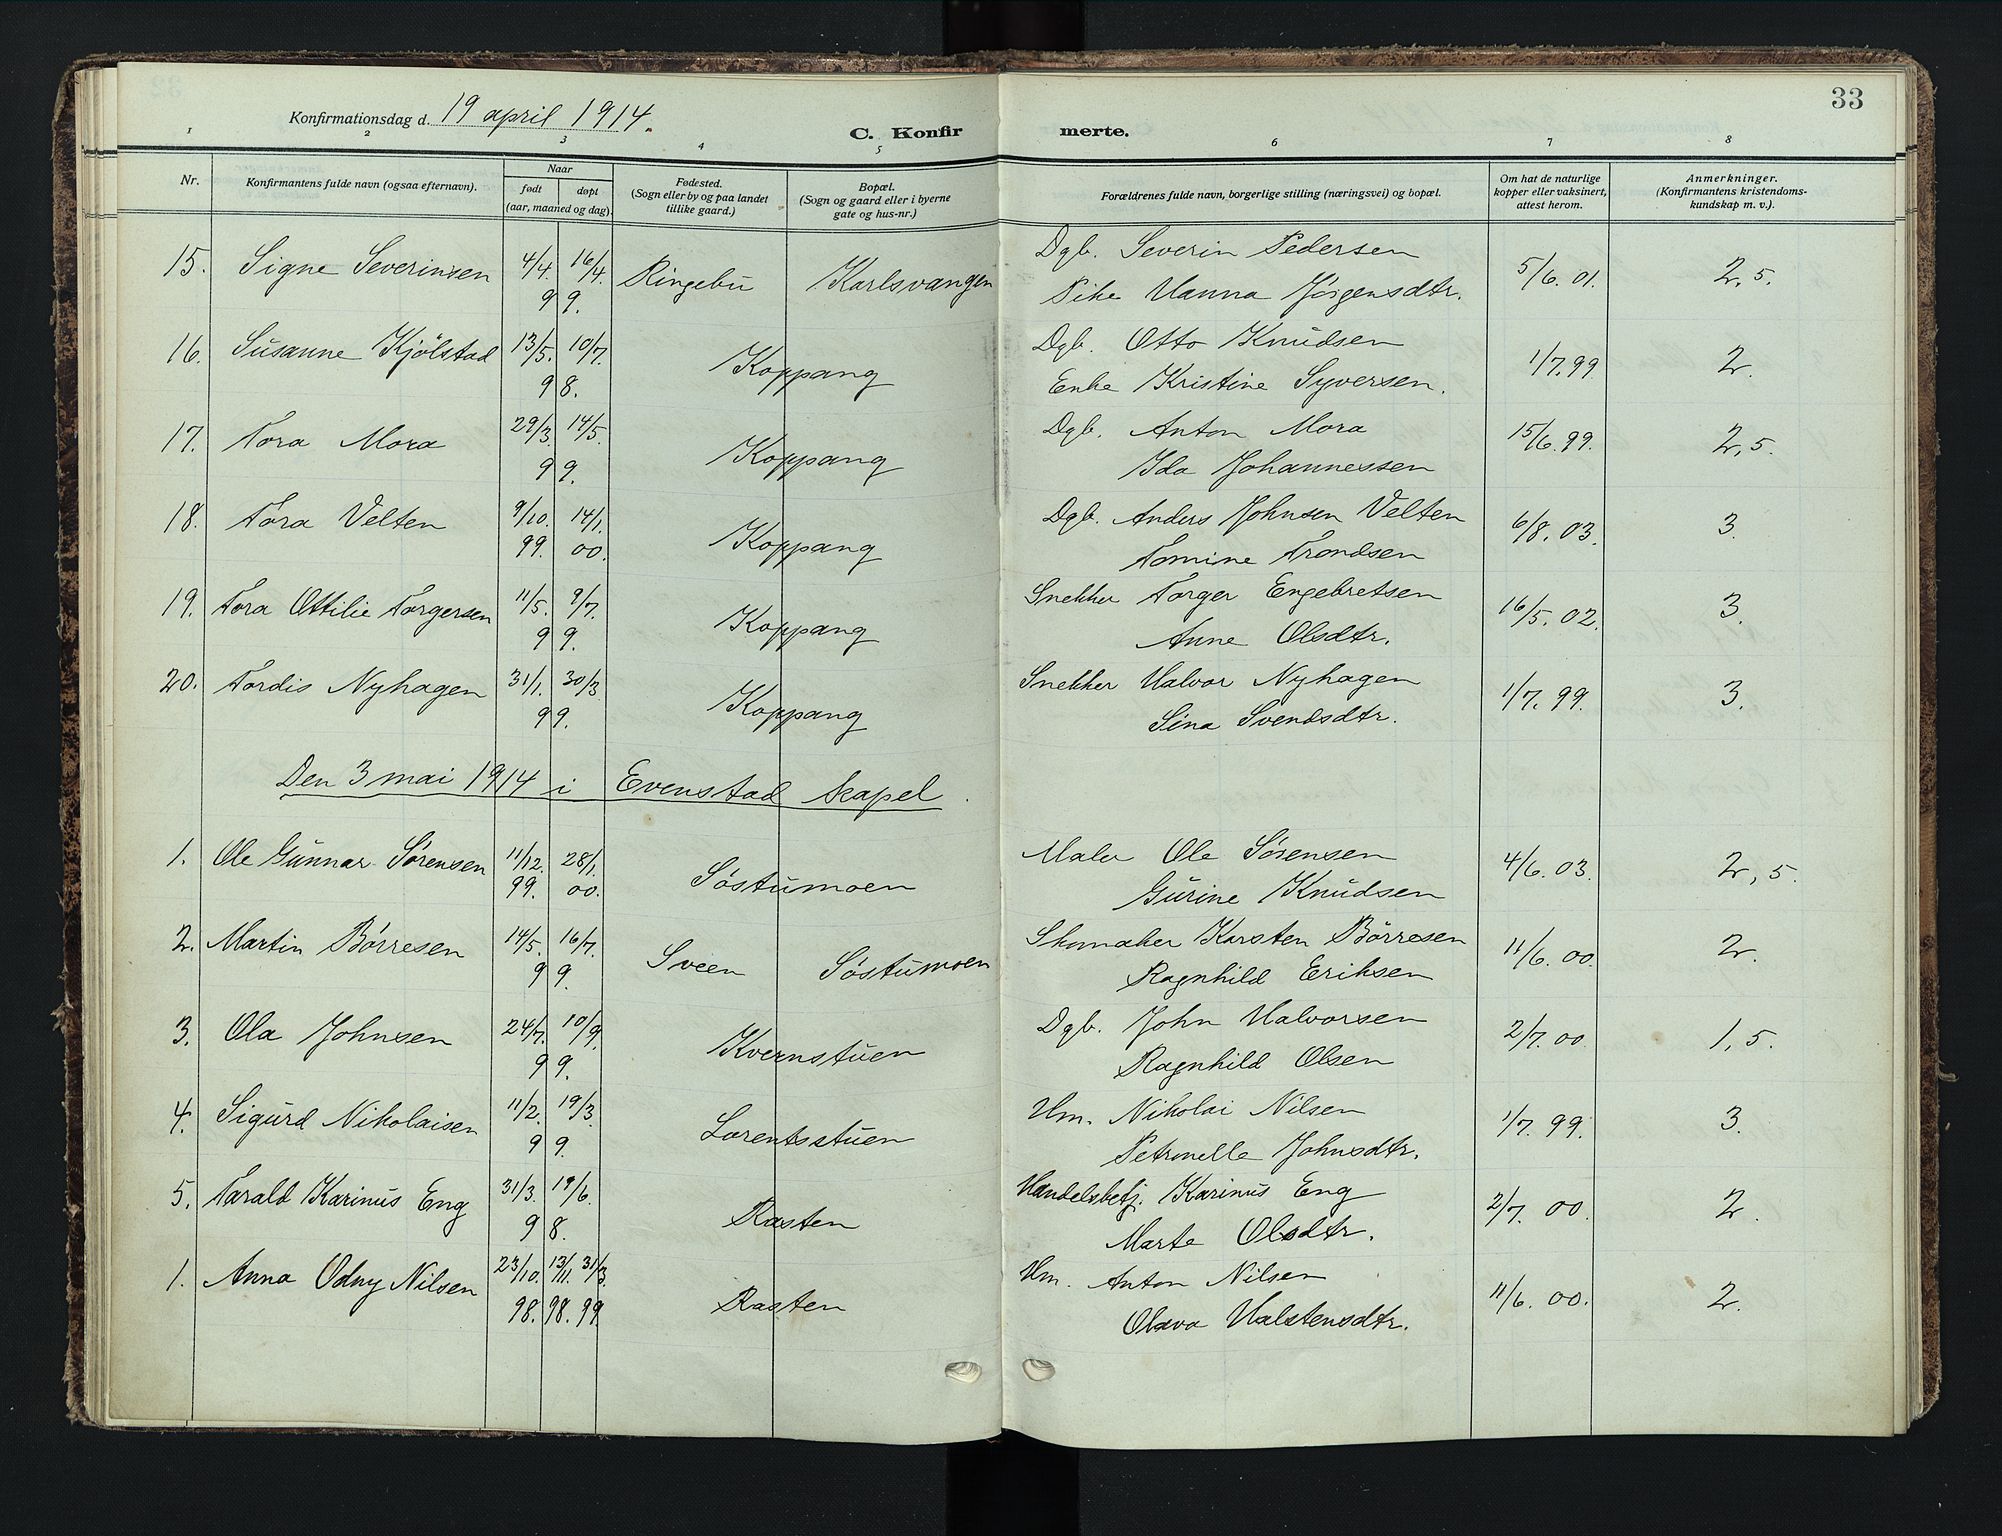 Konfirmationsdag d. 19 april 1914.
C. Konfirmerte.
33
1 2 3 4 5 6 7 8
Nr. Konfirmantens fulde navn (ogsaa efternavn). Naar født døpt (aar, maaned og dag). Fødested. (Sogn eller by og paa landet tillike gaard.) Bopæl. (Sogn og gaard eller i byerne gate og hus-nr.) Forældrenes fulde navn, borgerlige stilling (næringsvei) og bopæl. Om hat de naturlige kopper eller vaksinert, attest herom. Anmerkninger. (Konfirmantens kristendomskundskap m. v.).
15. Signe Severinsen 4/4. 16/4. 99. Ringebu Karlsvangen Dgb. Severin Pedersen 5/6. 01. 2,5.
Pike Hanna Jørgensdtr.
16. Susanne Kjölstad 13/5. 10/7. 98. Koppang Dgb. Otto Knudsen 1/7. 99 2.
Enke Kristine Syversen.
17. Tora Mora 29/3. 14/5. 99. Koppang Dgb. Anton Mora 15/6. 99. 2,5.
Ida Johannessen
18. Tora Velten 9/10. 99. 14/1. 00. Koppang Dgb. Anders Johnsen Velten 6/8. 03. 3.
Tomine Trondsen
19. Tora Ottilie Torgersen 11/5. 9/7. 99. Koppang Snekker Torger Engebretsen 16/5. 02. 3.
Anne Olsdtr.
20. Tordis Nyhagen 31/1. 30/3 99. Koppang Snekker Halvor Nyhagen 1/7. 99. 3.
Sina Svendsdtr.
Den 3 mai 1914 i Evenstad kapel.
1. Ole Gunnar Sørensen 11/12. 99. 28/1. 00. Søstumoen Maler Ole Sørensen 4/6. 03. 2,5.
Gurine Knudsen
2. Martin Børresen 14/5. 16/7. 99. Sveen Søstumoen Skomaker Karsten Børresen 11/6. 00. 2.
Ragnhild Eriksen
3. Ola Johnsen 24/7. 10/9. 99. Kvernstuen Dgb. John Halvorsen 2/7. 00 1,5.
Ragnhild Olsen
4. Sigurd Nikolaisen 11/2. 19/3. 99. Lorentsstuen Hm. Nikolai Nilsen 1/7. 99. 3.
Petronelle Johnsdtr.
5. Tarald Karinus Eng 31/3. 19/6. 98. Rasten Handelsbetj. Karinus Eng 2/7. 00. 2.
Marte Olsdtr.
1. Anna Odny Nilsen 23/10. 98. 13/11. 98. 31/3. 99 Rasten Hm. Anton Nilsen 11/6. 00. 2.
Olava Halstensdtr.